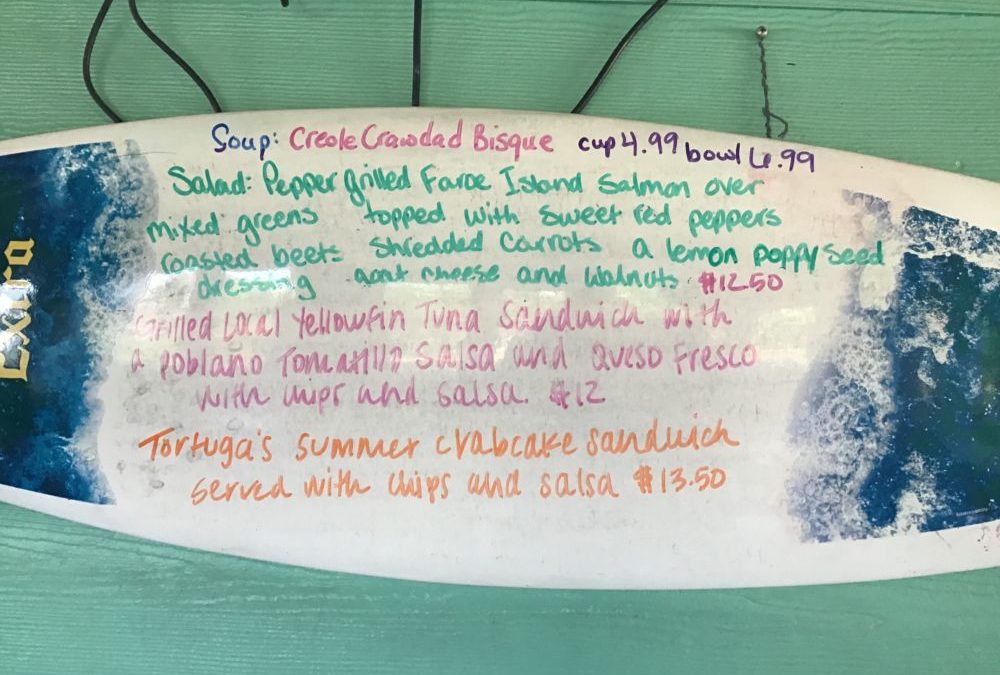 Extra
Soup: Creole Crawdad Bisque cup 4.99 bowl 6.99
Salad: Pepper grilled Faroe Island Salmon over
mixed greens topped with sweet red peppers
roasted beets shredded carrots a lemon poppy seed
dressing goat cheese and walnuts $12.50
Grilled Local Yellowfin Tuna Sandwich with
a poblano Tomatillo Salsa and Queso Fresco
with chips and salsa. $12
Tortuga's summer crabcake sandwich
served with chips and salsa $13.50